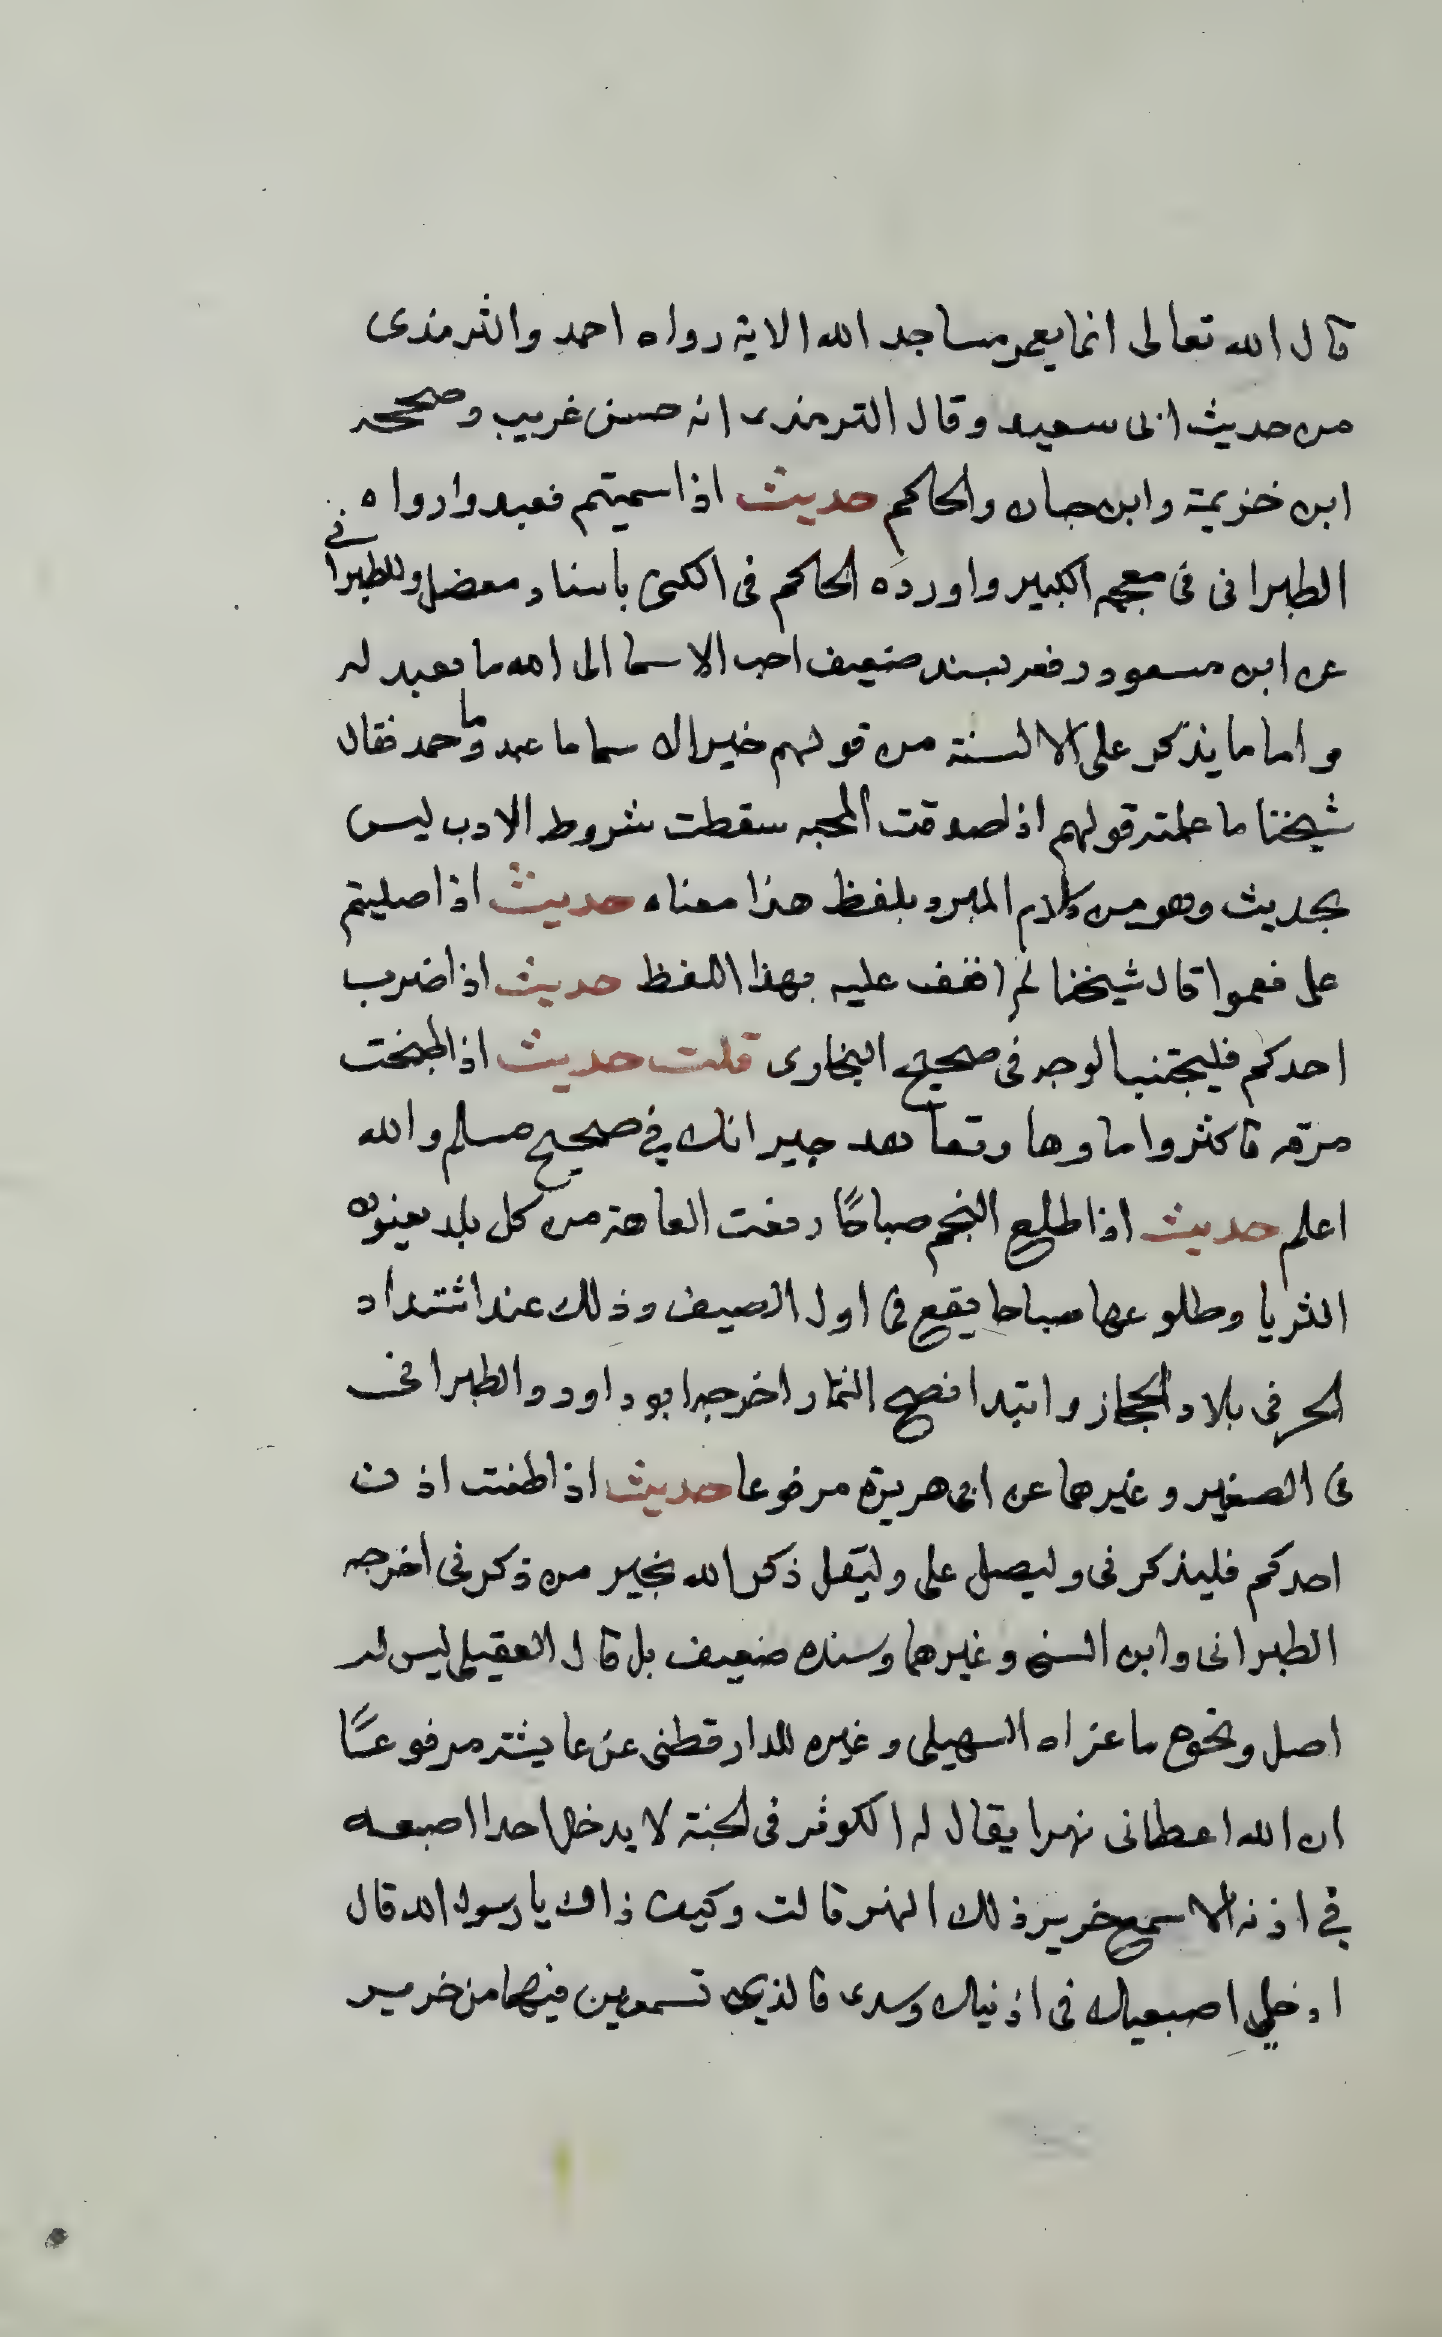 قال الله تعالى انما يعمر مساجد الله الاية رواه احمد والترمذى
من حديث ابى سعيد وقال الترمذى انه حسن غريب وصححه
ابن خزيمة وابن حبان والحاكم حديث اذا سميتم فعبدوا رواه
الطبرانى فى معجمه الكبير واورده الحاكم فى الكنى باسناد معضل وللطبرانى
عن ابن مسعود رفعه بسند ضعيف احب الاسما الى الله ما تعبد له
واما ما يذكر على الالسنة من قولهم خير الاسما ما عبد وما حمد فقال
شيخنا ما علمته قولهم اذا صدقت المحبه سقطت شروط الادب ليس
بحديث وهو من كلام المبرد بلفظ هذا معناه حديث اذا صليتم
على فعموا قال شيخنا لم اقف عليه بهذا اللفظ حديث اذا ضرب
احدكم فليجتنب الوجه فى صحيح البخارى قلت حديث اذا طبخت
مرقه فاكثروا ماوها وتعاهد جيرانك في صحيح مسلم والله
اعلم حديث اذا طلع النجم صباحًا رفعت العاهة من كل بلد يعنون
الثريا وطلوعها صباحا يقع فى اول الصيف وذلك عند اشتداد
الحر فى بلاد الحجاز وابتدا نضج الثمار اخرجه ابو داود والطبرانى
فى الصغير وغيرهما عن ابى هريرة مرفوعا حديث اذا طنت اذن
احدكم فليذكرنى وليصل على وليقل ذكر الله بخير من ذكرنى اخرجه
الطبرانى وابن السنى وغيرهما وسنده ضعيف بل قال العقيلى ليس له
اصل ونحوه ما عزاه السهيلى وغيره للدارقطنى عن عايشة مرفوعًا
ان الله اعطانى نهرا يقال له الكوثر فى الجنة لا يدخل احدا اصبعه
في اذنه الا سمع خرير ذلك النهر قالت وكيف ذاك يا رسول الله قال
ادخلي اصبعيك فى اذنيك وسدى فالذى تسمعين فيهما من خرير